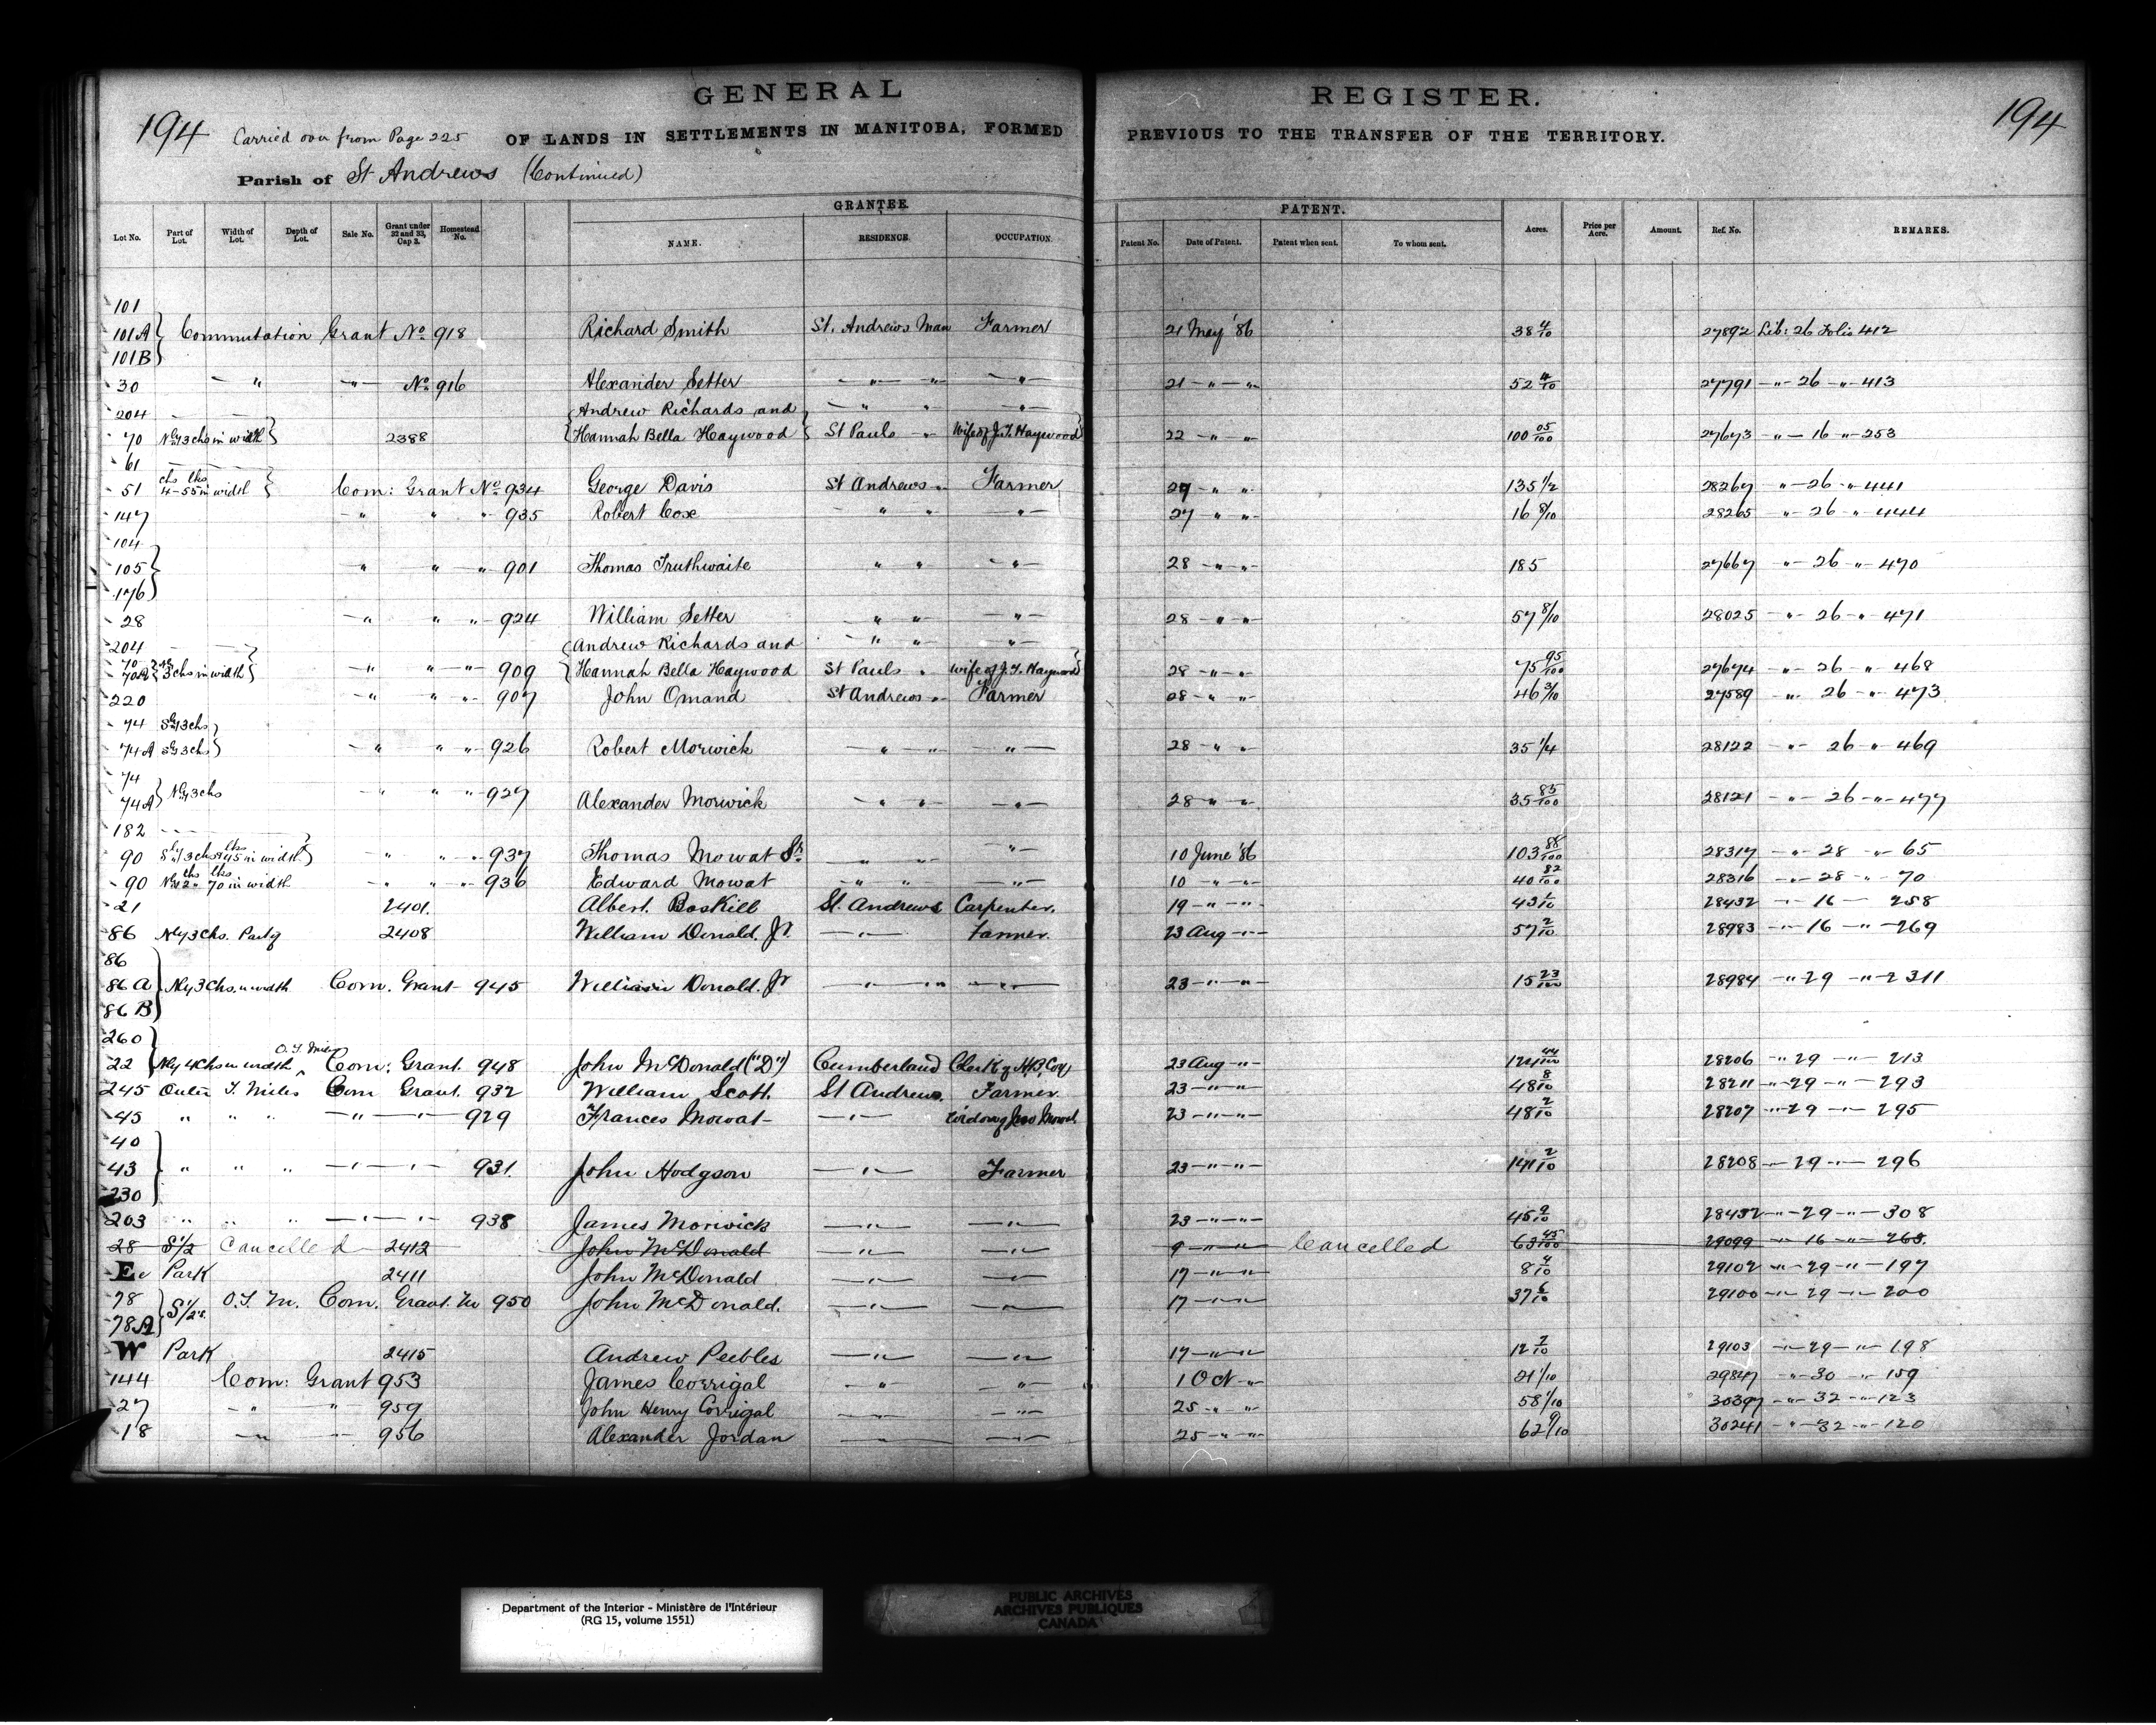 GENERAL REGISTER.
194 Carried over from Page 225 OF LANDS IN SETTLEMENTS IN MANITOBA, FORMED PREVIOUS TO THE TRANSFER OF THE TERRITORY. 194
Parish of St Andrews (Continued)
GRANTEE. PATENT.
Lot No. Part of Lot. Width of Lot. Depth of Lot. Sale No. Grant under 32 and 33, Cap 3. Homestead No. NAME. RESIDENCE. OCCUPATION. Patent No. Date of Patent. Patent when sent. To whom sent. Acres. Price per Acre. Amount. Ref. No. REMARKS.
101
101A Commutation Grant No 918 Richard Smith St. Andrews Man Farmer 21 May '86 38 4/10 27892 Lib: 26 Folio 412
101B
30 " " No 916 Alexander Setter " " " 21 " " 52 4/10 27791 " 26 " 413
204 Andrew Richards and " " "
70 Nly 3 chs in width 2388 Hannah Bella Haywood St Pauls " Wife of J.T. Haywood 22 " " 100 05/100 27673 " 16 " 253
61
51 chs lks 4-55 in width Com: Grant No 934 George Davis St Andrews " Farmer 27 " " 135 1/2 28267 " 26 " 441
147 " " " 935 Robert Cox " " " 27 " " 16 8/10 28265 " 26 " 444
104
105 " " " 901 Thomas Truthwaite " " " 28 " " 185 27667 " 26 " 470
176
28 " " " 924 William Setter " " " 28 " " 57 8/10 28025 " 26 " 471
204 Andrew Richards and " " "
70 70A 3 chs in width " " " 909 Hannah Bella Haywood St Pauls " wife of J.T. Haywood 28 " " 75 95/100 27674 " 26 " 468
220 " " " 907 John Omand St Andrews " Farmer 28 " " 46 3/10 27589 " 26 " 473
74 Sly 3 chs
74A Sly 3 chs " " " 926 Robert Morwick " " " 28 " " 35 1/4 28122 " 26 " 469
74
74A Nly 3 chs " " " 927 Alexander Morwick " " " 28 " " 35 85/100 28121 " 26 " 477
182
90 Sly 3 chs 45 lks in width " " " 937 Thomas Mowat Sr " " " 10 June '86 103 88/100 28317 " 28 " 65
90 Nly 2 chs 70 lks in width " " " 936 Edward Mowat " " " 10 " " 40 82/100 28316 " 28 " 70
21 2401. Albert. Boskill St. Andrews Carpenter. 19 " " 43 1/10 28432 " 16 258
86 Nly 3 chs. Part of 2408 William Donald. Jr. " Farmer. 23 Aug " 57 2/10 28983 " 16 " 269
86
86 A Nly 3 Chs. in width Com. Grant 945 William Donald. Jr " " " 23 " " 15 23/100 28984 " 29 " 311
86 B
260
22 Nly 4 Chs in width O. T. Miles Com: Grant. 948 John McDonald ("D") Cumberland Clerk of H.B. Coy 23 Aug " 124 44/100 28206 " 29 " 213
245 Outer T. Miles Com Grant. 932 William Scott. St Andrews. Farmer. 23 " " 48 8/10 28211 " 29 " 293
45 " " " " " 929 Frances Mowat " Widow of Jno Mowat. 23 " " 48 2/10 28207 " 29 " 295
40
43 " " " " " 931. John Hodgson " Farmer 23 " " 141 2/10 28208 " 29 " 296
230
203 " " " " " 938 James Morwick " " 23 " " 45 9/10 28432 " 29 " 308
28 S 1/2 Cancelled 2412 John McDonald " " 9 " " Cancelled 63 45/100 29099 " 16 " 268.
E Park 2411 John McDonald " " 17 " " 8 4/10 29102 " 29 " 197
78 S 1/2s. O.T. M. Com. Grant. No 950 John McDonald. " " 17 " " 37 6/10 29100 " 29 " 200
78A
W Park 2415 Andrew Peebles " " 17 " " 12 7/10 29103 " 29 " 198
144 Com: Grant 953 James Corrigal " " 1 Oct " 21 1/10 29847 " 30 " 159
27 " " 959 John Henry Corrigal " " 25 " " 58 1/10 30397 " 32 " 123
18 " " 956 Alexander Jordan " " 25 " " 62 9/10 30241 " 32 " 120
Department of the Interior - Ministère de l'Intérieur
(RG 15, volume 1551)
PUBLIC ARCHIVES
ARCHIVES PUBLIQUES
CANADA